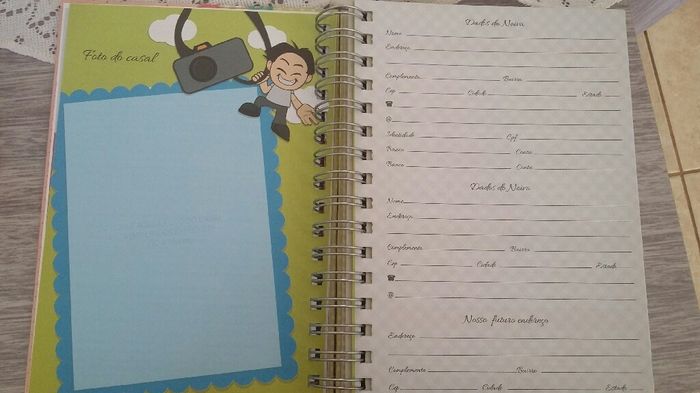 Foto do casal
Dados da Noiva
Nome
Endereço
Complemento Bairro
Cep Cidade Estado
☎
@
Identidade Cpf
Banco Conta
Banco Conta
Dados do Noivo
Nome
Endereço
Complemento Bairro
Cep Cidade Estado
☎
@
Nosso futuro endereço
Endereço
Complemento Bairro
Cep Cidade Estado